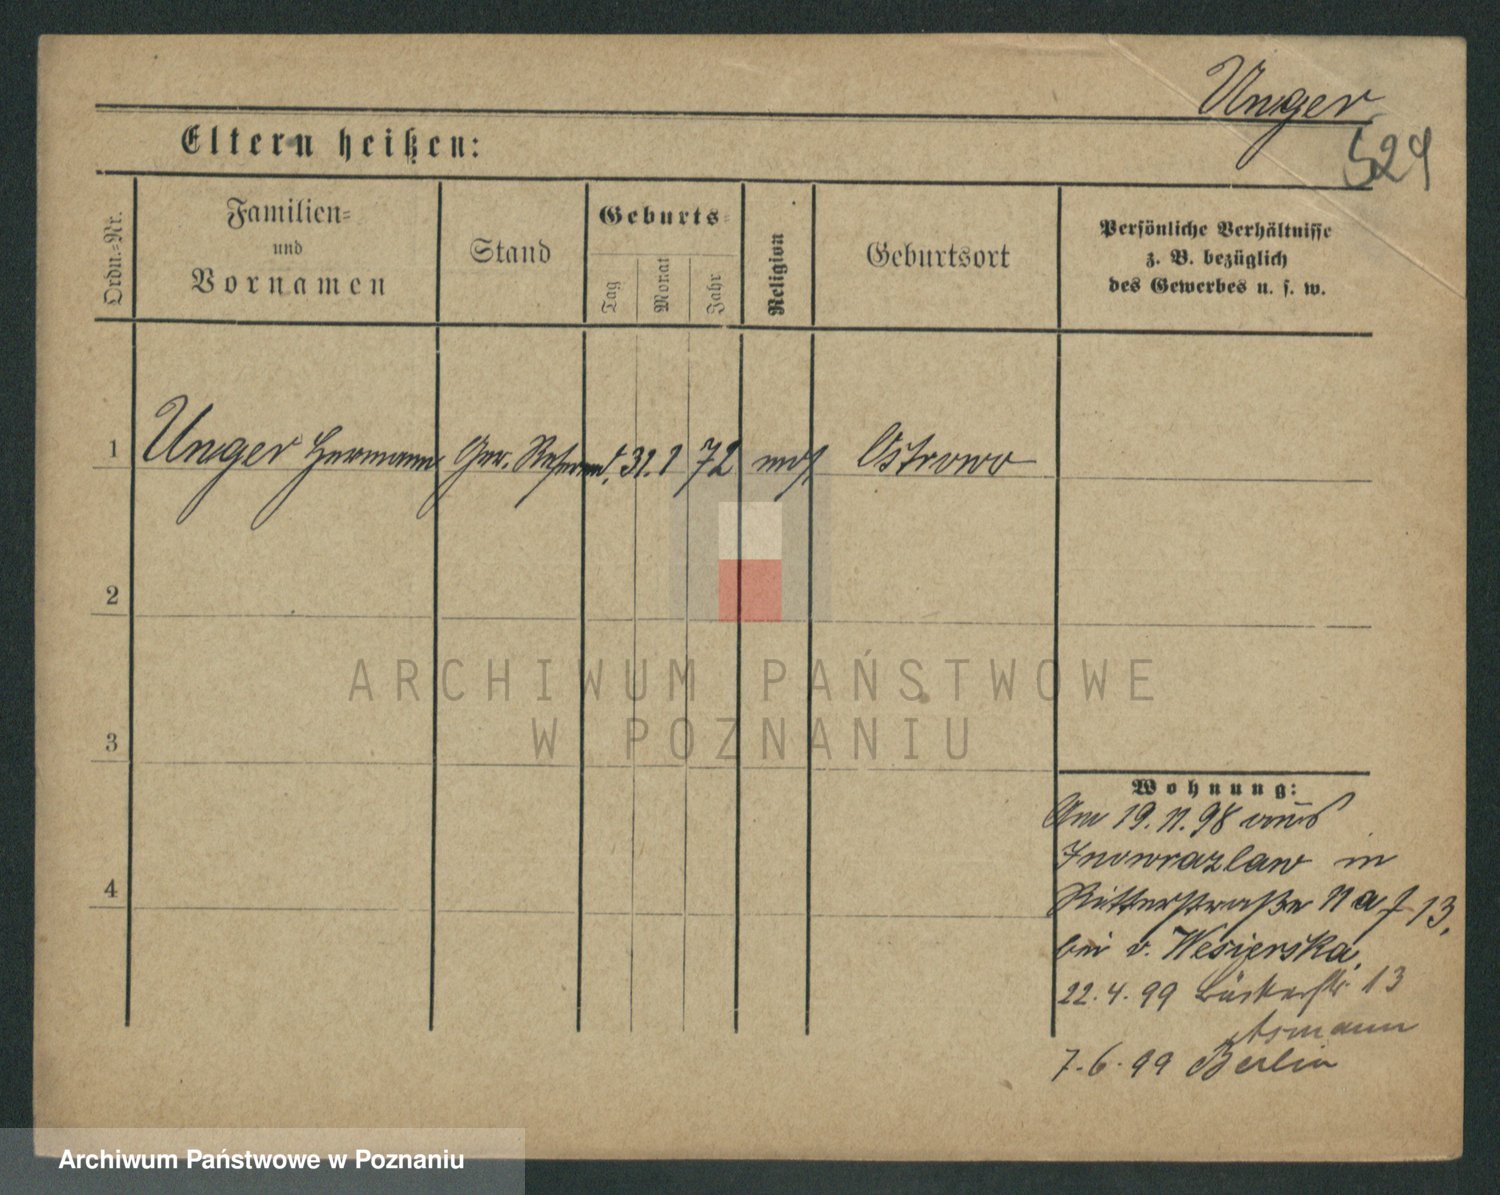 Unger
524
Eltern heißen:
Ordn.-Nr.
Familien-
und
Vornamen
Stand
Geburts-
Tag
Monat
Jahr
Religion
Geburtsort
Persönliche Verhältnisse
z. B. bezüglich
des Gewerbes u. s. w.
1 Unger Hermann Ger. Referend. 31. 1 72 mos. Ostrowo
2
3
4
ARCHIWUM PAŃSTWOWE
W POZNANIU
Wohnung:
Am 19. 11. 98 aus
Inowrazlaw in
Ritterstraße 13,
bei v. Wesierska,
22. 4. 99 Bäckerstr. 13
Asmann
7. 6. 99 Berlin
Archiwum Państwowe w Poznaniu